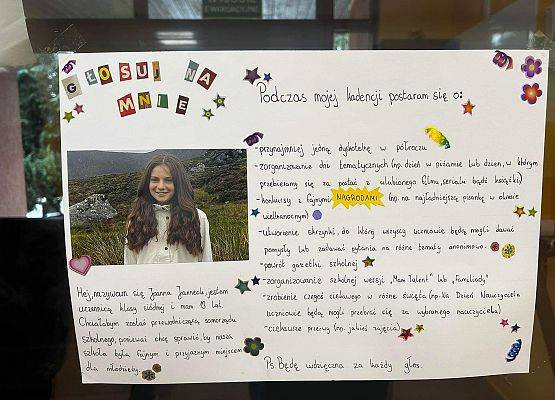 WYJŚCIE
EWAKUACYJNE
GŁOSUJ NA
MNIE
Podczas mojej kadencji postaram się o:
-przynajmniej jedną dyskotekę w półroczu
-zorganizowanie dni tematycznych (np. dzień w piżamie lub dzień, w którym
przebieramy się za postać z ulubionego filmu, serialu bądź książki)
-konkursy z fajnymi NAGRODAMI (np. na najładniejszą pisankę w okresie
wielkanocnym)
-utworzenie skrzynki, do której wszyscy uczniowie będą mogli dawać
pomysły lub zadawać pytania na różne tematy anonimowo.
-powrót gazetki szkolnej
-zorganizowanie szkolnej wersji „Mam Talent" lub „Familiady"
-zrobienie czegoś ciekawego w różne święta (np. Na Dzień Nauczyciela
uczniowie będą mogli przebrać się za wybranego nauczyciela)
-ciekawsze przerwy (np. jakieś zajęcia)
Ps. Będę wdzięczna za każdy głos.
Hej, nazywam się Joanna
jestem
uczennicą klasy siódmej i mam 13 lat.
Chciałabym zostać przewodniczącą samorządu
szkolnego, ponieważ chcę sprawić, by nasza
szkoła była fajnym i przyjaznym miejscem
dla młodzieży.